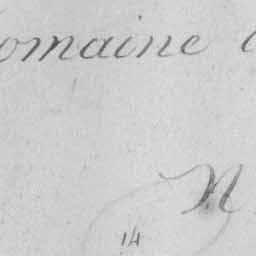 omaine
N
14